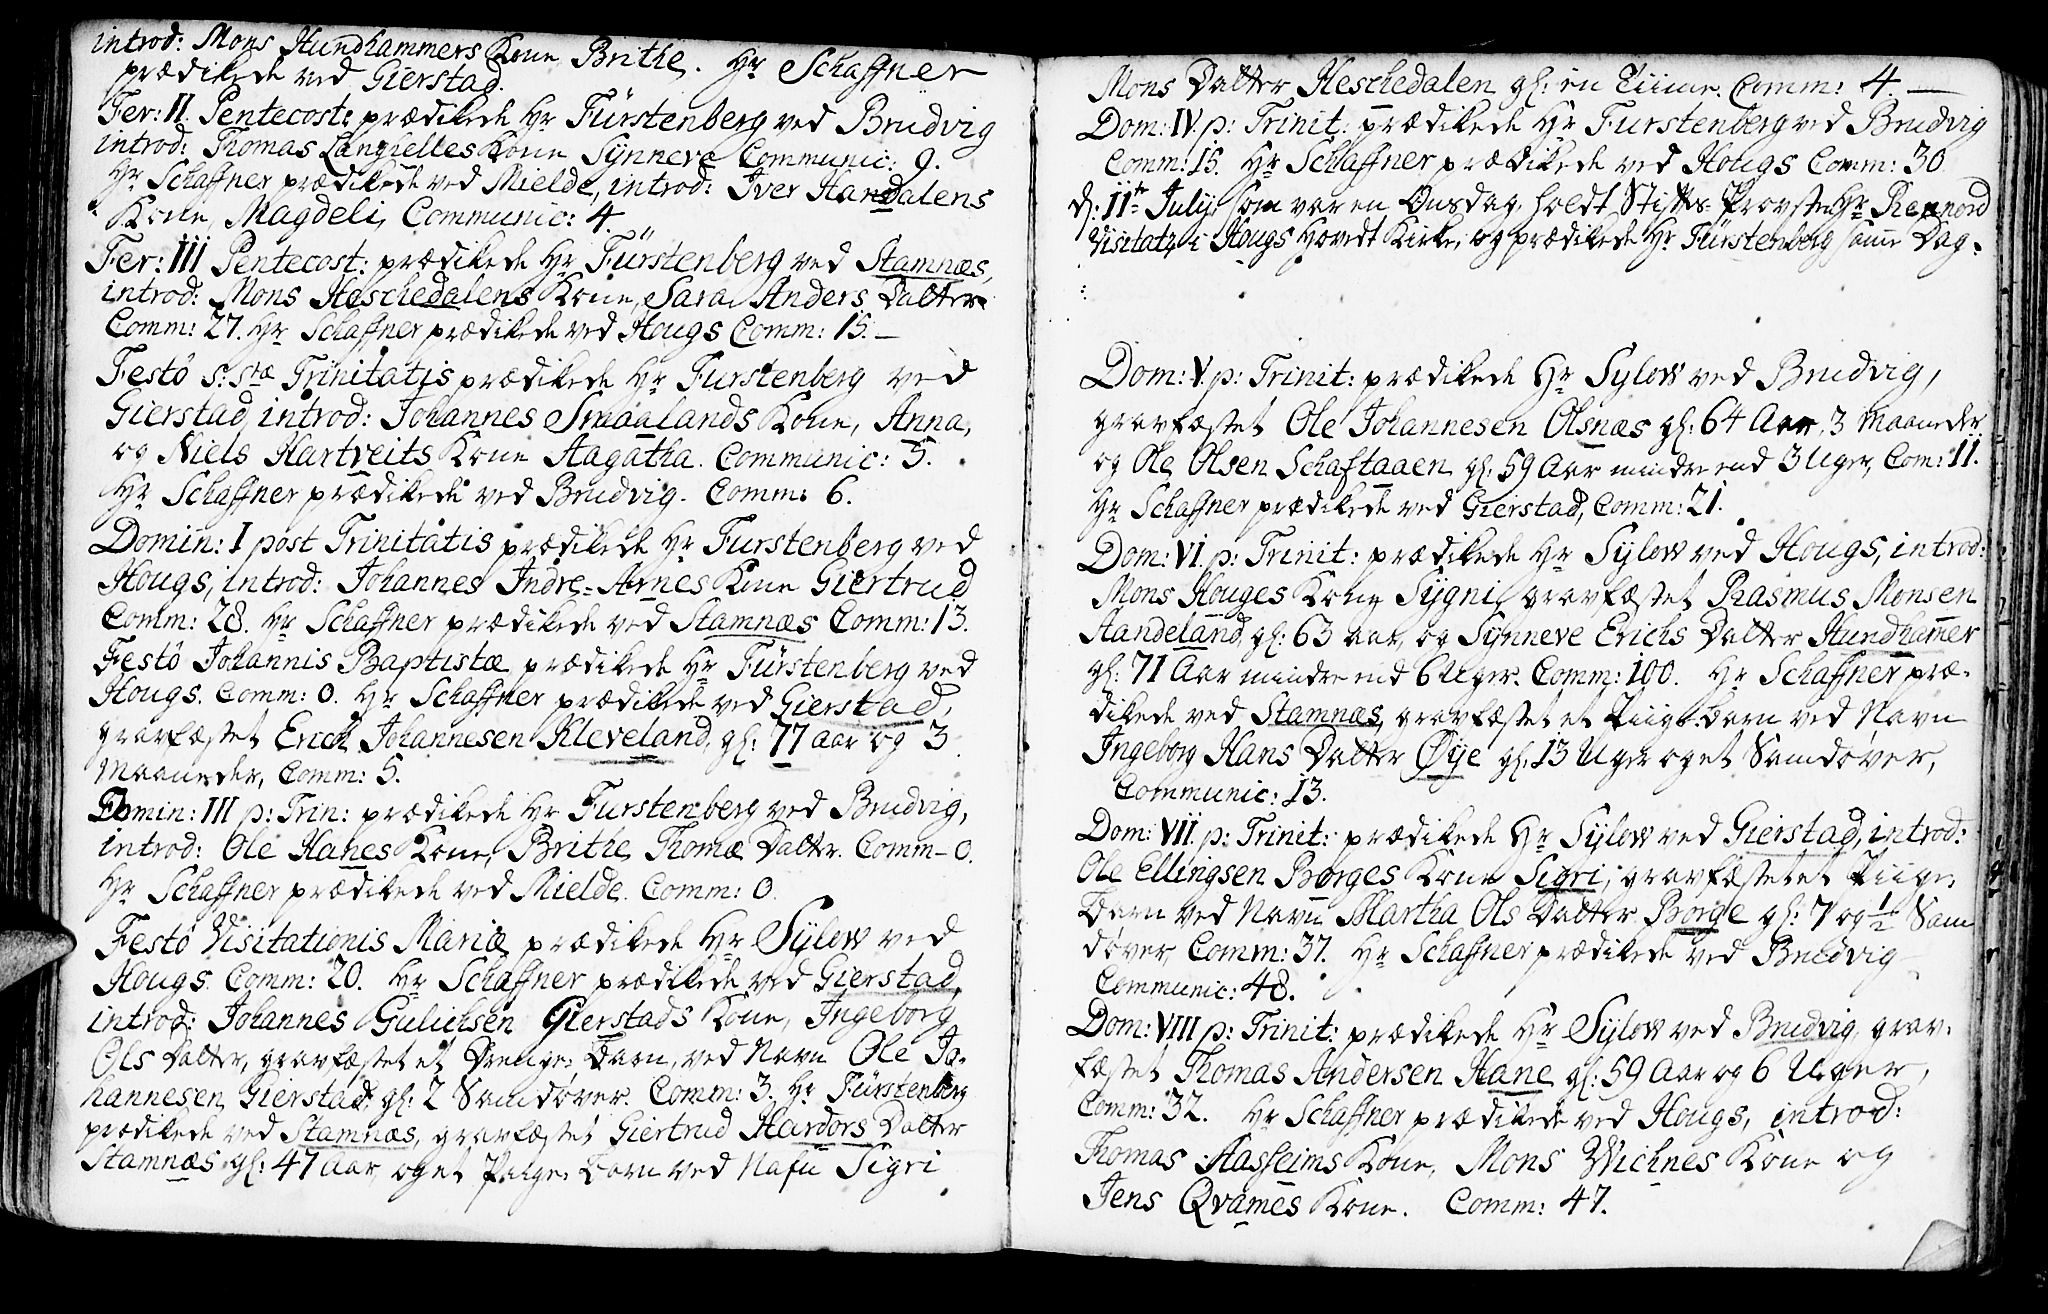 introd: Mons Hundhammers Kone Brithe. Hr Schaffner
prædikede ved Gierstad.
Fer: II. Pentecost: prædikede Hr Fürstenberg ved Brudvig
introd: Thomas Langielles Kone Synneve Communic: 9.
Hr Schaffner prædikede ved Mielde, introd: Iver Handalens
Kone, Magdeli, Communic: 4.
Fer: III Pentecost: prædikede Hr Fürstenberg ved Stamnæs,
introd: Mons Heschedalens Kone, Sara Anders Datter
Comm: 27. Hr Schaffner prædikede ved Hougs Comm: 15. –
Festo S: Stæ Trinitatis prædikede Hr Furstenberg ved
Gierstad, introd: Johannes Smaalands Kone, Anna,
og Niels Hartveits Kone Aagatha. Communic: 5.
Hr Schaffner prædikede ved Brudvig. Comm: 6.
Domin: I post Trinitatis prædikede Hr Furstenberg ved
Hougs, introd: Johannes Indre=Arnes Kone Giertrud
Comm: 28. Hr Schaffner prædikede ved Stamnæs Comm: 13.
Festo Johannis Baptistæ prædikede Hr Fürstenberg ved
Hougs. Comm: 0. Hr Schaffner prædikede ved Gierstad,
gravfæstet Erich Johannesen Kleveland, gl: 77 aar og 3
Maaneder, Comm: 5.
Domin: III p: Trin: prædikede Hr Furstenberg ved Brudvig,
introd: Ole Hanes Kone, Brithe Thomæ Datter. Comm – 0.
Hr Schaffner prædikede ved Mielde. Comm: 0.
Festo Visitationis Mariæ prædikede Hr Sylow ved
Hougs. Comm: 20. Hr Schaffner prædikede ved Gierstad,
introd: Johannes Gulichsen Gierstads Kone, Ingeborg
Ols Datter, gravfæstet et Drenge-Barn, ved Navn Ole Jo-
hannesen Gierstad, gl: 2 Samdøver. Comm: 3. Hr Fürstenberg
prædikede ved Stamnæs, gravfæstet Giertrud Hardors Datter
Stamnæs gl: 47 Aar, og et Pige-Barn ved Nafn Sigri
Mons Datter Heschedalen gl: en Tiime. Comm: 4. –
Dom: IV. p: Trinit: prædikede Hr Furstenberg ved Brudvig
Comm: 15. Hr Schaffner prædikede ved Hougs Comm: 30
d: 11te July, som var en Onsdag, holdt Stifts-Provsten Hr Rennord
Visitatz i Hougs Hovedt Kirke, og prædikede Hr Fürstenberg samme Dag.
Dom: V. p: Trinit: prædikede Hr Sylow ved Brudvig,
gravfæstet Ole Johannesen Olsnæs gl: 64 Aar, 3 Maaneder
og Ole Olsen Schaftaaen gl: 59 Aar mindre end 3 Uger, Com: 11.
Hr Schaffner prædikede ved Gierstad, Comm: 21.
Dom: VI. p: Trinit: prædikede Hr Sylow ved Hougs, introd:
Mons Houges Kone Sygni, gravfæstet Rasmus Monsen
Aandeland, gl: 63 aar, og Synneve Erichs Datter Hundhamer
gl: 71 Aar mindre end 6 Uger. Comm: 100. Hr Schaffner præ-
dikede ved Stamnæs, gravfæstet et Piige-Barn ved Navn
Ingeborg Hans Datter Øye gl: 13 Uger og et Samdøver,
Communic: 13.
Dom: VII. p: Trinit: prædikede Hr Sylow ved Gierstad, introd:
Ole Ellingsen Borges Kone Sigri, gravfæstet et Piige-
Barn ved Navn Martha Ols Datter Borge gl: 7 og 1/2 Sam
døver, Comm: 37. Hr Schaffner prædikede ved Brudvig –
Communic: 48.
Dom: VIII p: Trinit: prædikede Hr Sylow ved Brudvig, grav-
fæstet Thomas Andersen Hane gl: 59 Aar og 6 Uger,
Comm: 32. Hr Schaffner prædikede ved Hougs, introd:
Thomas Aasheims Kone, Mons Wichnes Kone og
Jens Qvames Kone. Comm: 47.